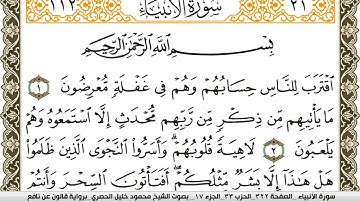 ١١٢ سُورَةُ الأَنبِيَاءِ ٢١
بِسْمِ اللَّهِ الرَّحْمَٰنِ الرَّحِيمِ
اقْتَرَبَ لِلنَّاسِ حِسَابُهُمْ وَهُمْ فِي غَفْلَةٍ مُّعْرِضُونَ ١
مَا يَأْتِيهِم مِّن ذِكْرٍ مِّن رَّبِّهِم مُّحْدَثٍ إِلَّا اسْتَمَعُوهُ وَهُمْ
يَلْعَبُونَ ٢ لَاهِيَةً قُلُوبُهُمْ وَأَسَرُّوا النَّجْوَى الَّذِينَ ظَلَمُوا
هَلْ هَٰذَا إِلَّا بَشَرٌ مِّثْلُكُمْ أَفَتَأْتُونَ السِّحْرَ وَأَنتُمْ
سورة الأنبياء _ الصفحة ٣٢٢ _ الحزب ٣٣ _ الجزء ١٧ _ بصوت الشيخ محمود خليل الحصري برواية قالون عن نافع